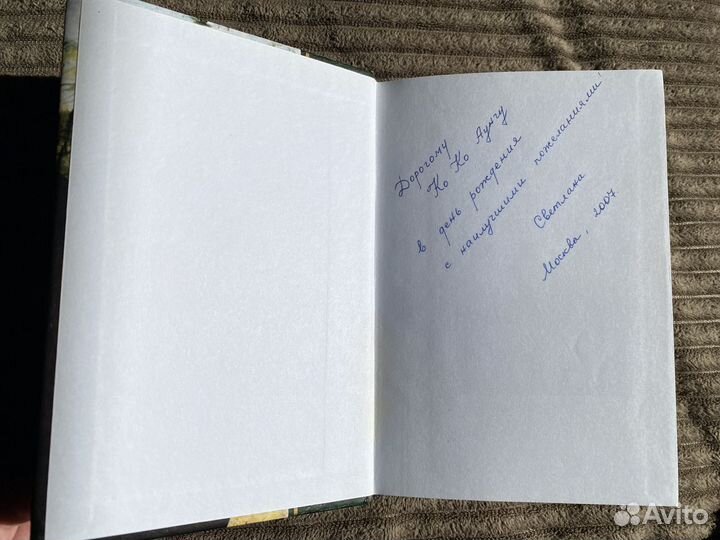 Дорогому
Ко Ко Аунгу
в день рождения
с наилучшими пожеланиями!
Светлана
Москва, 2007.
Avito